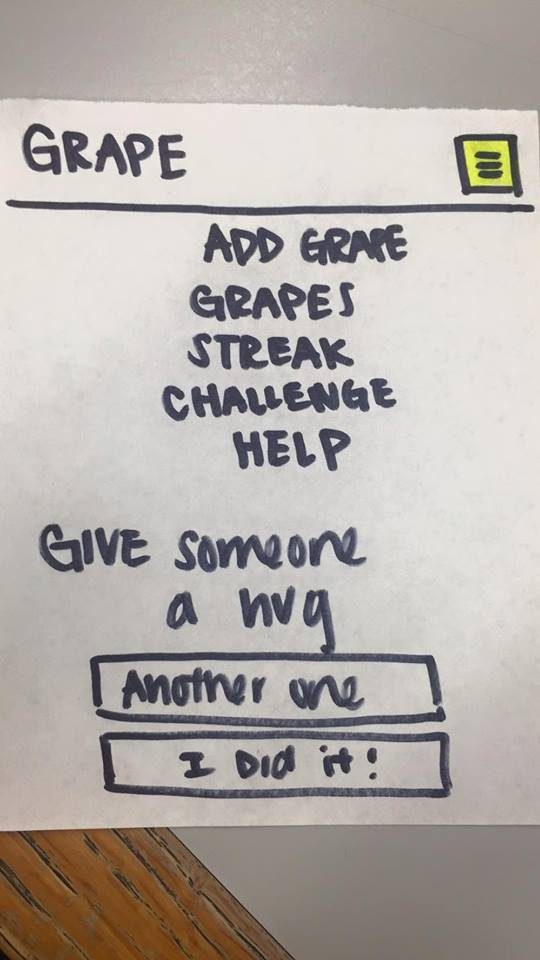 GRAPE
ADD GRAPE
GRAPES
STREAK
CHALLENGE
HELP
GIVE someone
a hug
Another one
I Did it!